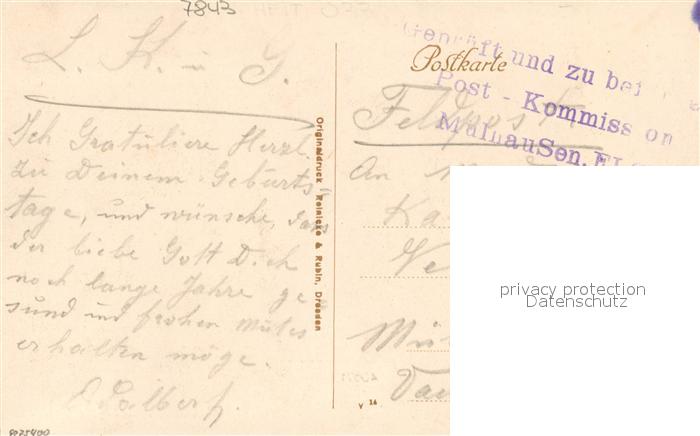 7843
L. K. u. G.
Ich Gratuliere Herzl.
zu Deinem Geburts
tage, und wünsche, dass
der liebe Gott Dich
noch lange Jahre ge
sund und frohen Mutes
erhalten möge.
Originaldruck Reinicke & Rubin, Dresden
Postkarte
Geprüft und zu be
Post - Kommission
MülhauSen.
Feldpost
An
Ka
Ve
Mü
V 14
privacy protection
Datenschutz
9025400